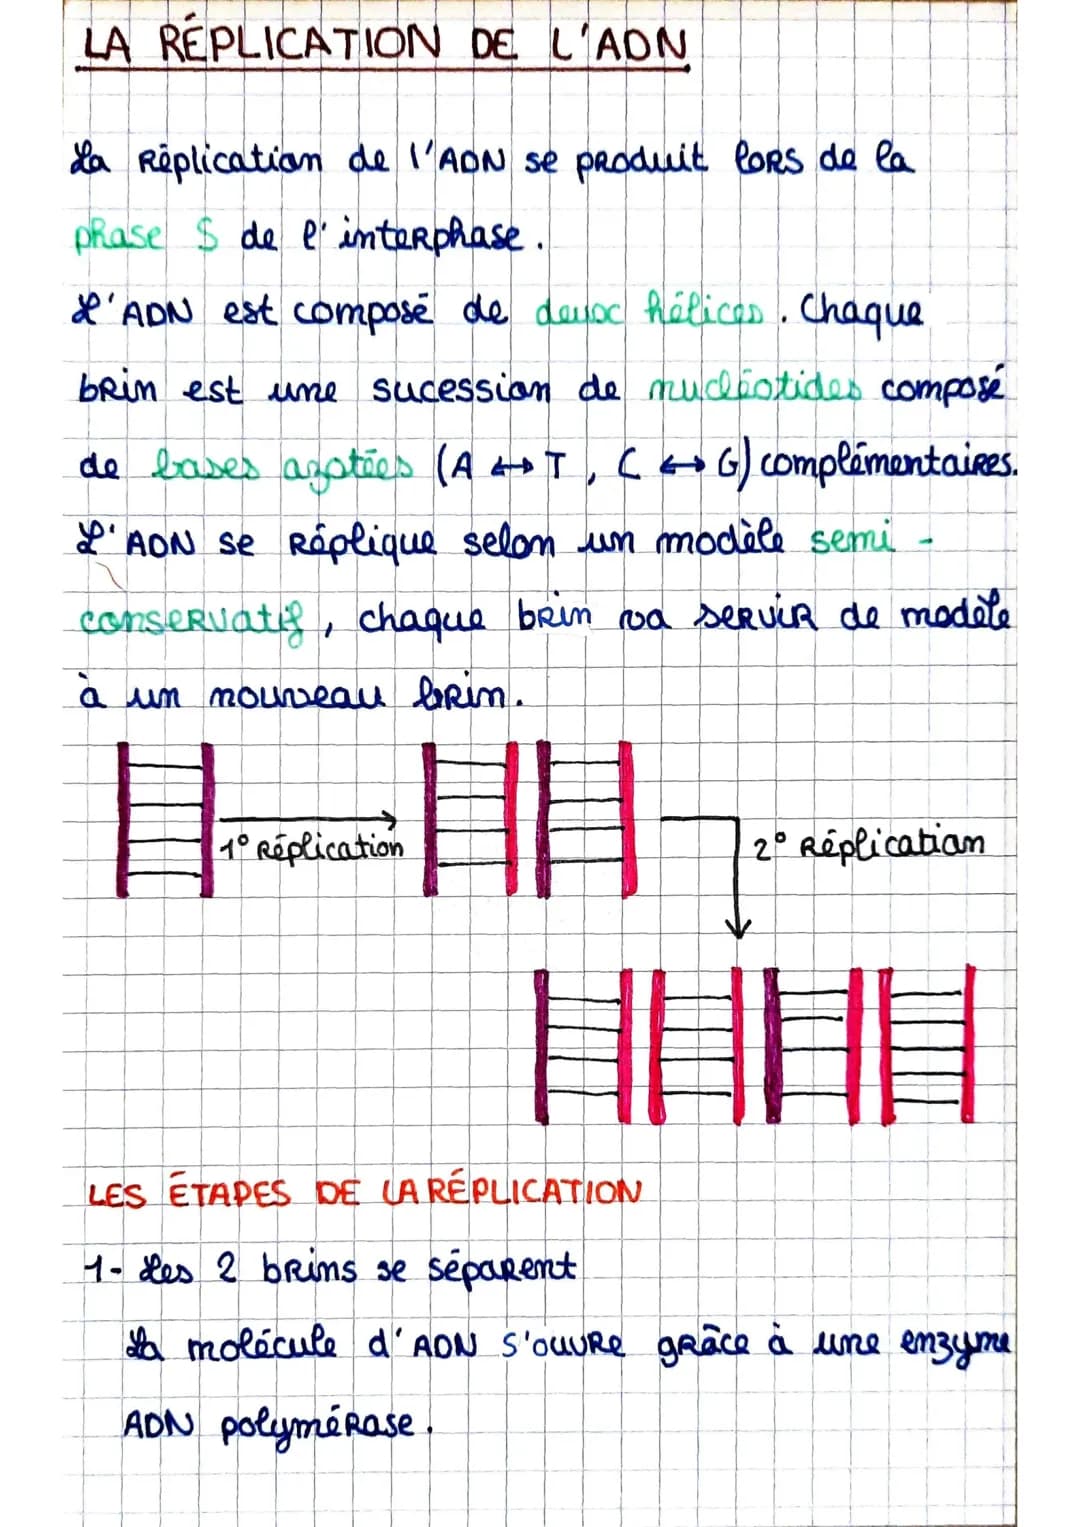 LA RÉPLICATION DE L'ADN
La Réplication de l'ADN se produit lors de la
phase S de l'interphase.
L'ADN est composé de deux hélices. Chaque
brin est une sucession de nucléotides composé
de bases azotées (A ↔ T, C ↔ G) complémentaires.
L'ADN se Réplique selon un modèle semi -
conservatif, chaque brin va servir de modèle
à un nouveau brin.
1° Réplication
2° Réplication
LES ÉTAPES DE LA RÉPLICATION
1- Les 2 brins se séparent
La molécule d'ADN s'ouvre grâce à une enzyme
ADN polymérase.